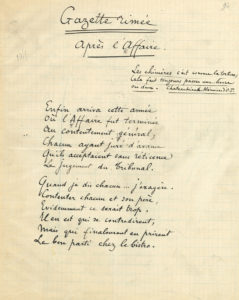 Gazette rimée
Après l'Affaire
Les chimères c'est comme la
cela fait toujours passer une heure
ou deux.
Enfin arriva cette année
Où l'Affaire fut terminée
Au contentement général,
Chacun ayant juré d'avance
Qu'ils acceptaient sans réticence
Le jugement du Tribunal.
Quand je dis chacun... j'exagère.
Contenter chacun et son père,
Evidemment ce serait trop.
Il en est qui se contredirent,
Mais qui finalement en prirent
Le bon parti chez le bistro.